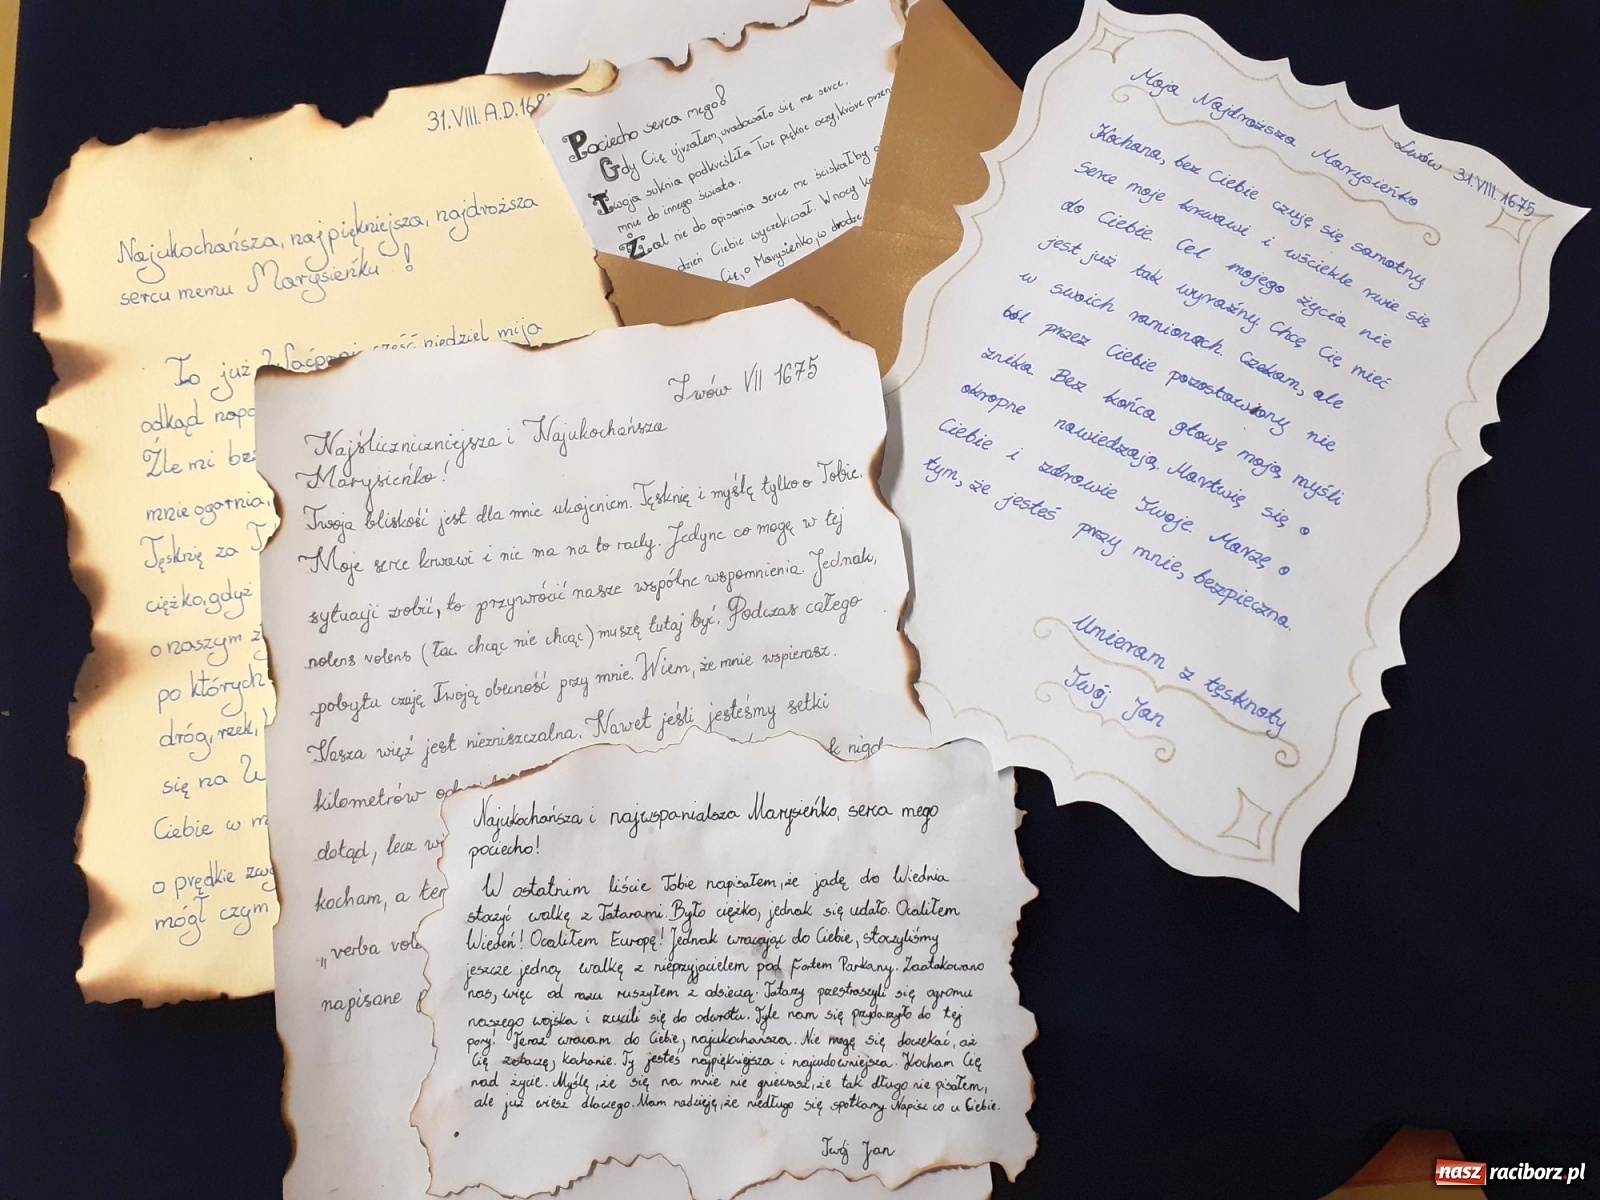 31.VIII.A.D.168
Najukochańsza, najpiękniejsza, najdroższa
sercu memu Marysieńku!
To już Waćpani sześć niedziel mija
odkąd
Źle mi
mnie ogarnia,
Tęsknię za
ciężko, gdyż
o naszym
po których
dróg, rzek,
się na
Ciebie w
o prędkie
mógł czym
Pociecho serca mego!
Gdy Cię ujrzałem, uradowało się me serce.
Twoja suknia podkreśliła Twe piękne oczy, które
mnie do innego świata.
Żal nie do opisania serce me ściskałby
dzień Ciebie wyczekiwał. W nocy
Cię, o Marysieńko, w drodze
Lwów 31.VIII.1675
Moja Najdroższa Marysieńko
Kochana, bez Ciebie czuję się samotny
serce moje krwawi i wściekle rwie się
do Ciebie. Cel mojego życia nie
jest już tak wyraźny. Chcę Cię mieć
w swoich ramionach. Czekam, ale
ból przez Ciebie pozostawiony nie
znika. Bez końca głowę moją myśli
okropne nawiedzają. Martwię się o
Ciebie i zdrowie Twoje. Marzę o
tym, że jesteś przy mnie, bezpieczna.
Umieram z tęsknoty
Twój Jan
Lwów VII 1675
Najśliczniczniejsza i Najukochańsza
Marysieńko!
Twoja bliskość jest dla mnie ukojeniem. Tęsknię i myślę tylko o Tobie.
Moje serce krwawi i nic ma na to rady. Jedyne co mogę w tej
sytuacji zrobić, to przywrócić nasze wspólne wspomnienia. Jednak,
nolens volens (łac. chcąc nie chcąc) muszę tutaj być. Podczas całego
pobytu czuję Twoją obecność przy mnie. Wiem, że mnie wspierasz.
Nasza więź jest niezniszczalna. Nawet jeśli jesteśmy setki
kilometrów
dotąd, lecz
kocham, a
„verba
napisane
Najukochańsza i najwspanialsza Marysieńko, serca mego
pociecho!
W ostatnim liście Tobie napisałem, że jadę do Wiednia
stoczyć walkę z Tatarami. Było ciężko, jednak się udało. Ocaliłem
Wiedeń! Ocaliłem Europę! Jednak wracając do Ciebie, stoczyliśmy
jeszcze jedną walkę z nieprzyjacielem pod fortem Parkany. Zaatakowano
nas, więc od razu ruszyłem z odsieczą. Tatarzy przestraszyli się ogromu
naszego wojska i rzucili się do odwrotu. Tyle nam się przydarzyło do tej
pory! Teraz wracam do Ciebie, najukochańsza. Nie mogę się doczekać, aż
Cię zobaczę, kochanie. Ty jesteś najpiękniejsza i najcudowniejsza. Kocham Cię
nad życie. Myślę, że się na mnie nie gniewasz, że tak długo nie pisałem,
ale już wiesz dlaczego. Mam nadzieję, że niedługo się spotkamy. Napisz co u Ciebie.
Twój Jan
nasz raciborz.pl